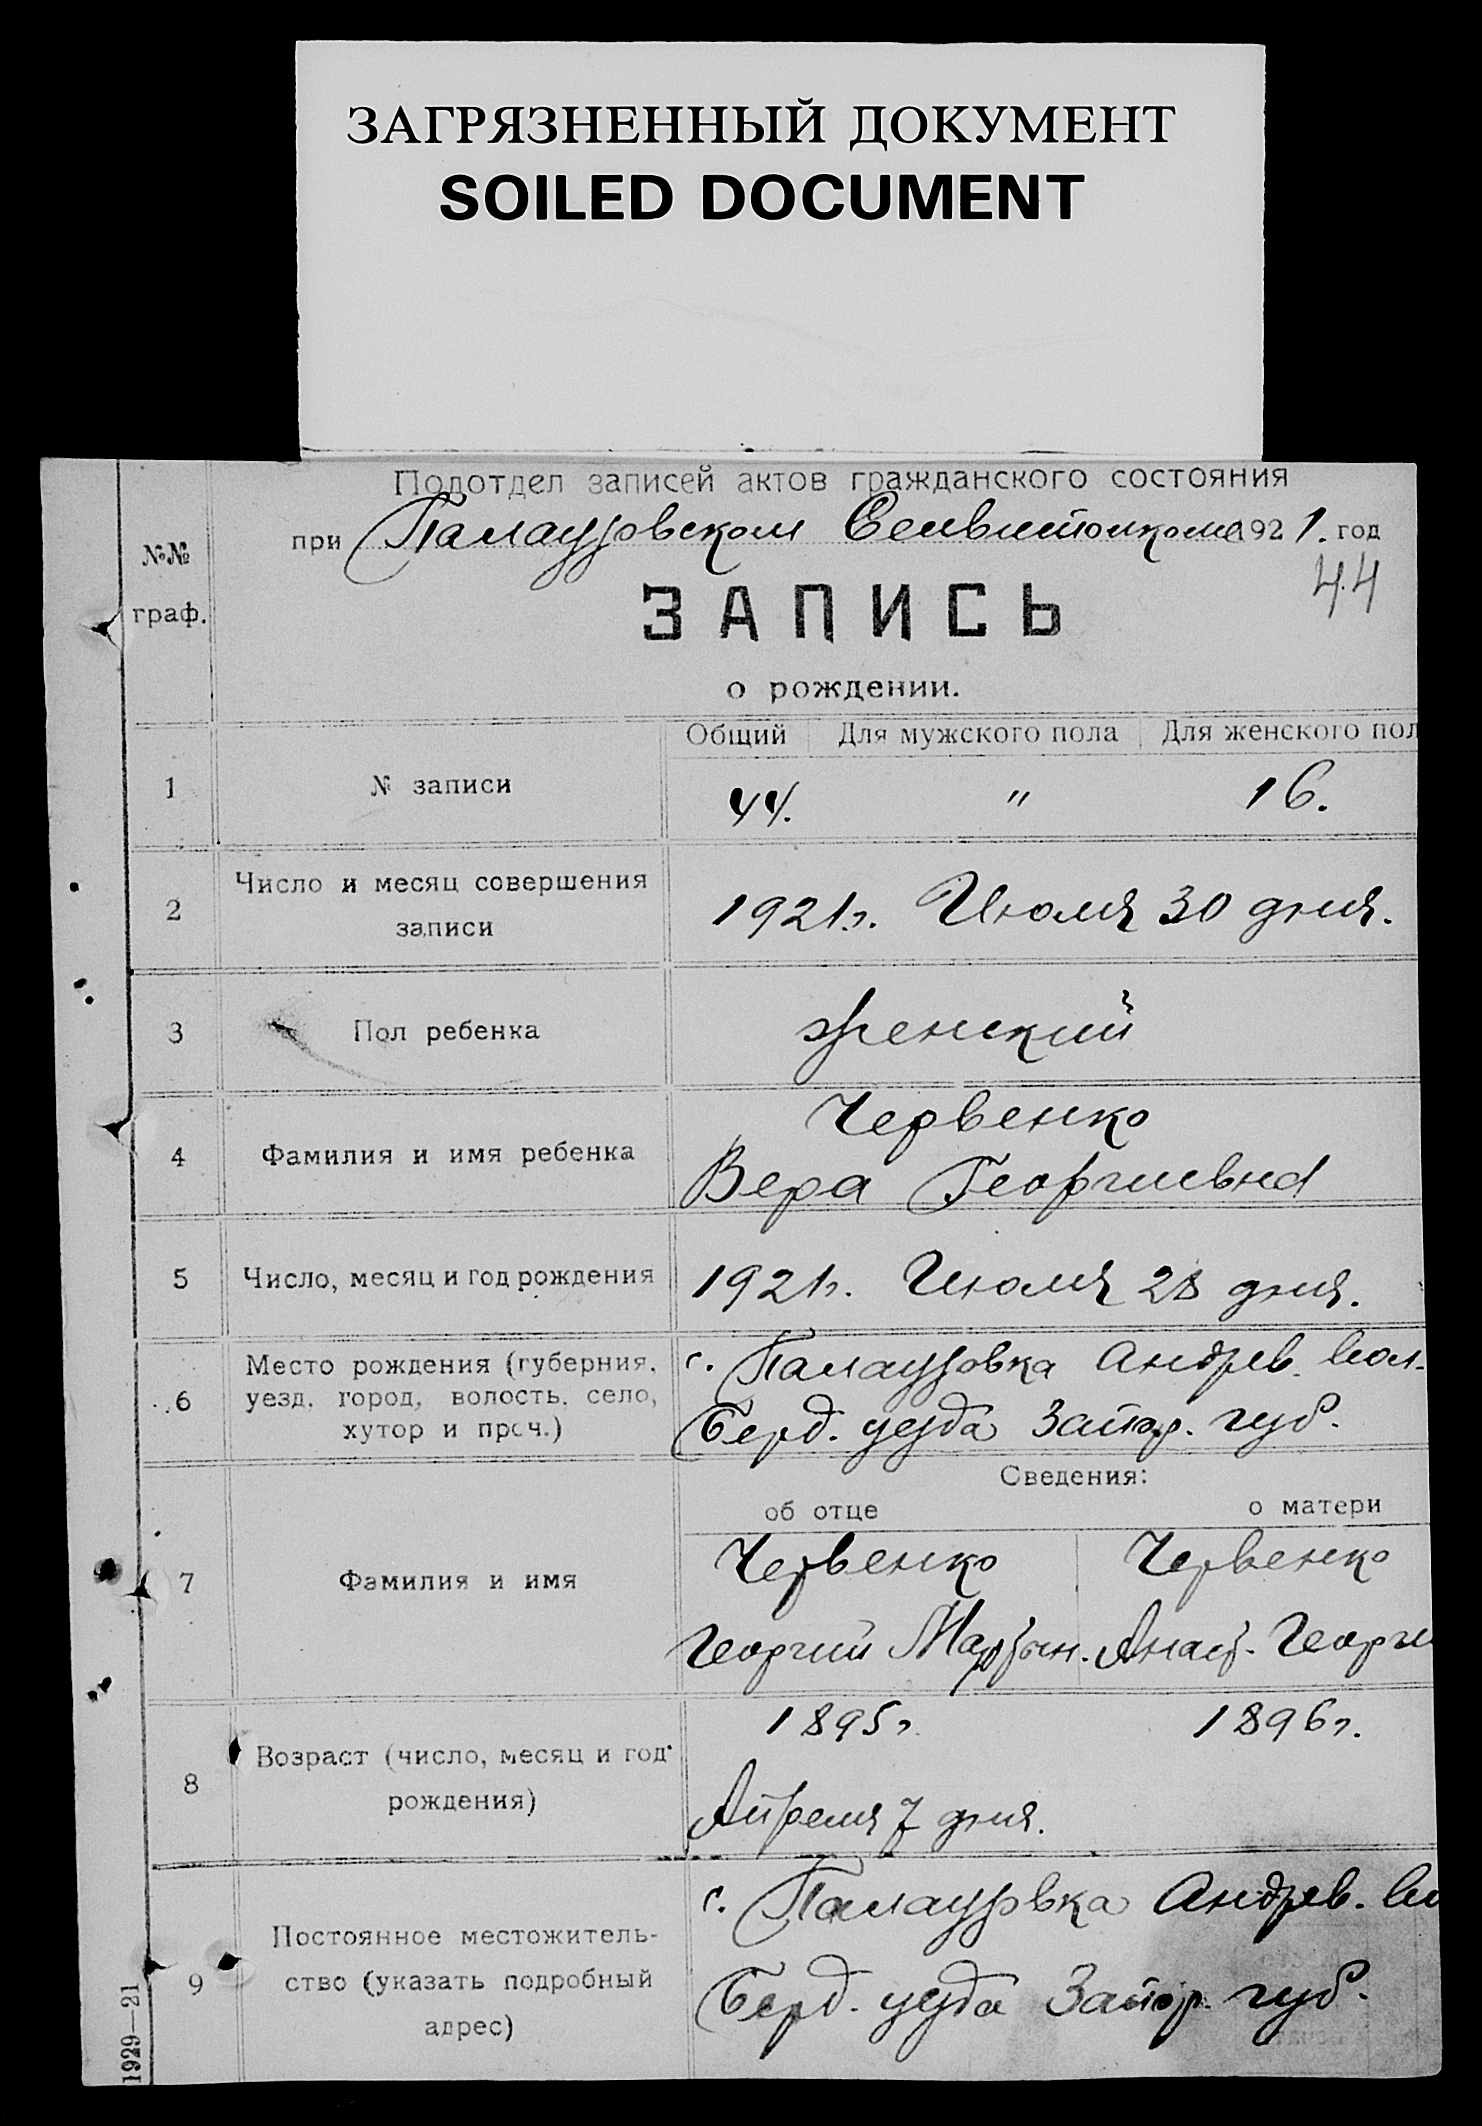 ЗАГРЯЗНЕННЫЙ ДОКУМЕНТ
SOILED DOCUMENT
Подотдел записей актов гражданского состояния
при Палаузовском 1921. год
№№
граф.
44
ЗАПИСЬ
о рождении.
Общий Для мужского пола Для женского пол
1 № записи 44. " 16.
2 Число и месяц совершения
записи
1921г. Июля 30 дня.
3 Пол ребенка женский
4 Фамилия и имя ребенка
Червенко
Вера Георгиевна
5 Число, месяц и год рождения 1921г. Июля 28 дня.
6 Место рождения (губерния,
уезд, город, волость, село,
хутор и проч.)
с. Палаузовка Андрев. вол.
Берд. уезда Запор. губ.
Сведения:
об отце о матери
7 Фамилия и имя
Червенко Червенко
Георгий Мартын. Анаст. Георги
8 Возраст (число, месяц и год
рождения)
1895г. 1896г.
Апреля 7 дня.
9 Постоянное местожитель-
ство (указать подробный
адрес)
с. Палаузовка Андрев. во
Берд. уезда Запор. губ.
1929—21